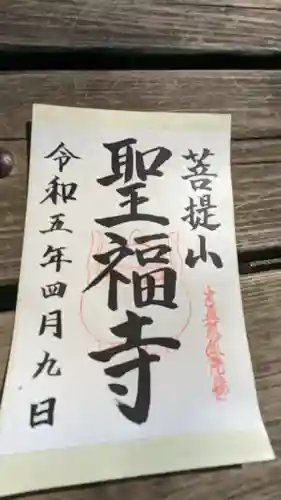 菩提山
聖福寺
令和五年四月九日